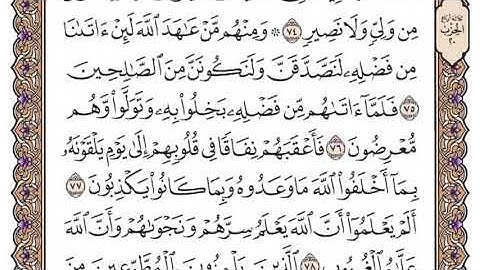 مِن وَلِيٍّ وَلَا نَصِيرٍ ٧٤ ۞ وَمِنْهُم مَّنْ عَٰهَدَ ٱللَّهَ لَئِنْ ءَاتَىٰنَا
مِن فَضْلِهِۦ لَنَصَّدَّقَنَّ وَلَنَكُونَنَّ مِنَ ٱلصَّٰلِحِينَ
٧٥ فَلَمَّآ ءَاتَىٰهُم مِّن فَضْلِهِۦ بَخِلُوا۟ بِهِۦ وَتَوَلَّوا۟ وَّهُم
مُّعْرِضُونَ ٧٦ فَأَعْقَبَهُمْ نِفَاقًا فِى قُلُوبِهِمْ إِلَىٰ يَوْمِ يَلْقَوْنَهُۥ
بِمَآ أَخْلَفُوا۟ ٱللَّهَ مَا وَعَدُوهُ وَبِمَا كَانُوا۟ يَكْذِبُونَ ٧٧
أَلَمْ يَعْلَمُوٓا۟ أَنَّ ٱللَّهَ يَعْلَمُ سِرَّهُمْ وَنَجْوَىٰهُمْ وَأَنَّ ٱللَّهَ
عَلَّٰمُ ٱلْغُيُوبِ ٧٨ ٱلَّذِينَ يَلْمِزُونَ ٱلْمُطَّوِّعِينَ مِنَ
الحزب
٢٠